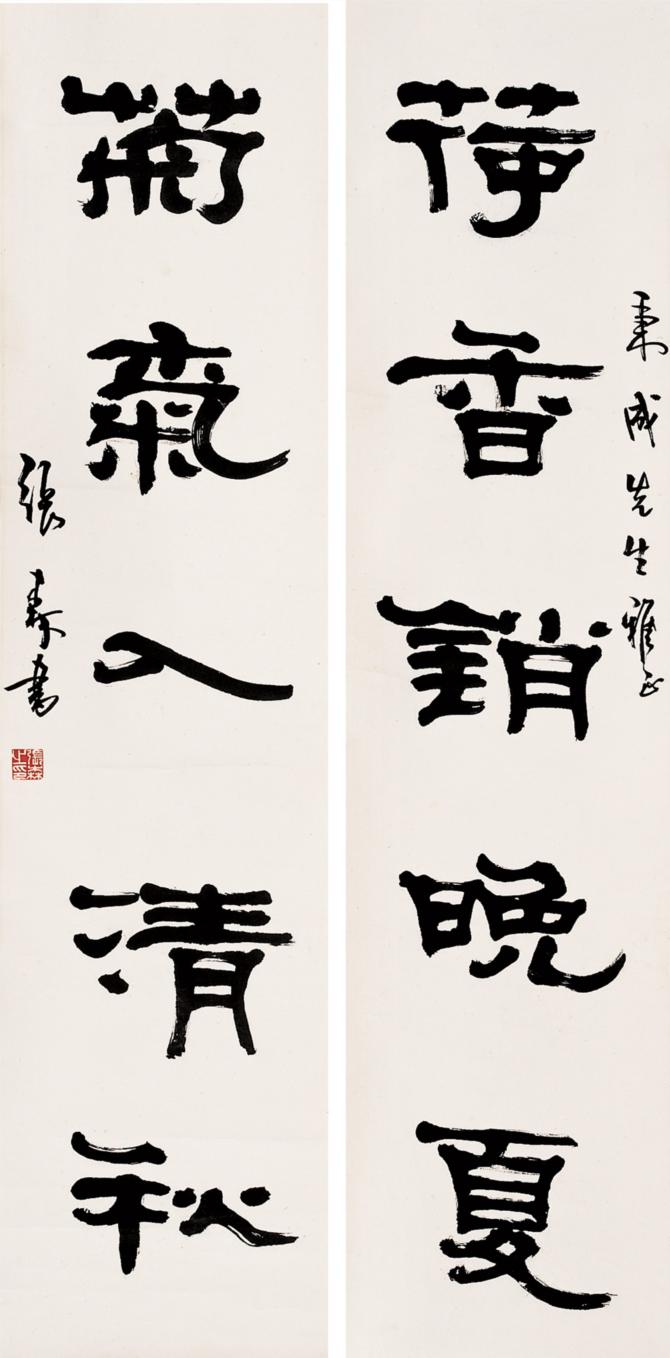 秉成先生雅正
荷香銷晚夏
菊氣入清秋
張森書
張森之印